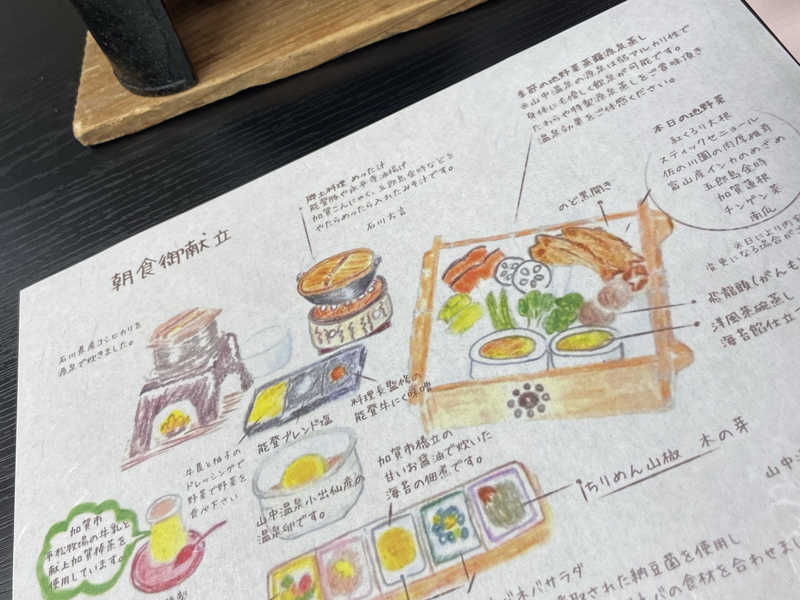 朝食御献立
石川県産コシヒカリを
源泉で炊きました。
郷土料理 めった汁
能登豚や永平寺油揚げ
加賀こんにゃく、五郎島金時などを
やたらめったら入れたみそ汁です。
石川大言
季節の地野菜蒸籠源泉蒸し
※山中温泉の源泉は弱アルカリ性で
身体にも優しく飲泉が可能です。
たわらや特製源泉蒸しをご賞味頂き
温泉効果をご体感ください。
本日の地野菜
紅くるり大根
スティックセニョール
佐の川園の肉厚椎茸
富山産インカのめざめ
五郎島金時
加賀蓮根
チンゲン菜
南瓜
※日により内容
変更になる場合が
のど黒開き
飛龍頭(がんも
洋風茶碗蒸し
海苔餡仕立
料理長監修の
能登牛にく味噌
能登ブレンド塩
牛蒡と柚子の
ドレッシングで
野菜で野菜を
食べ下さい
加賀市
平松牧場の牛乳と
献上加賀棒茶を
使用しています。
山中温泉小出仙産の
温泉卵です。
加賀市橋立の
甘いお醤油で炊いた
海苔の佃煮です。
ちりめん山椒 木の芽
山中
ネバネバサラダ
取された納豆菌を使用し
バの食材を合わせまし